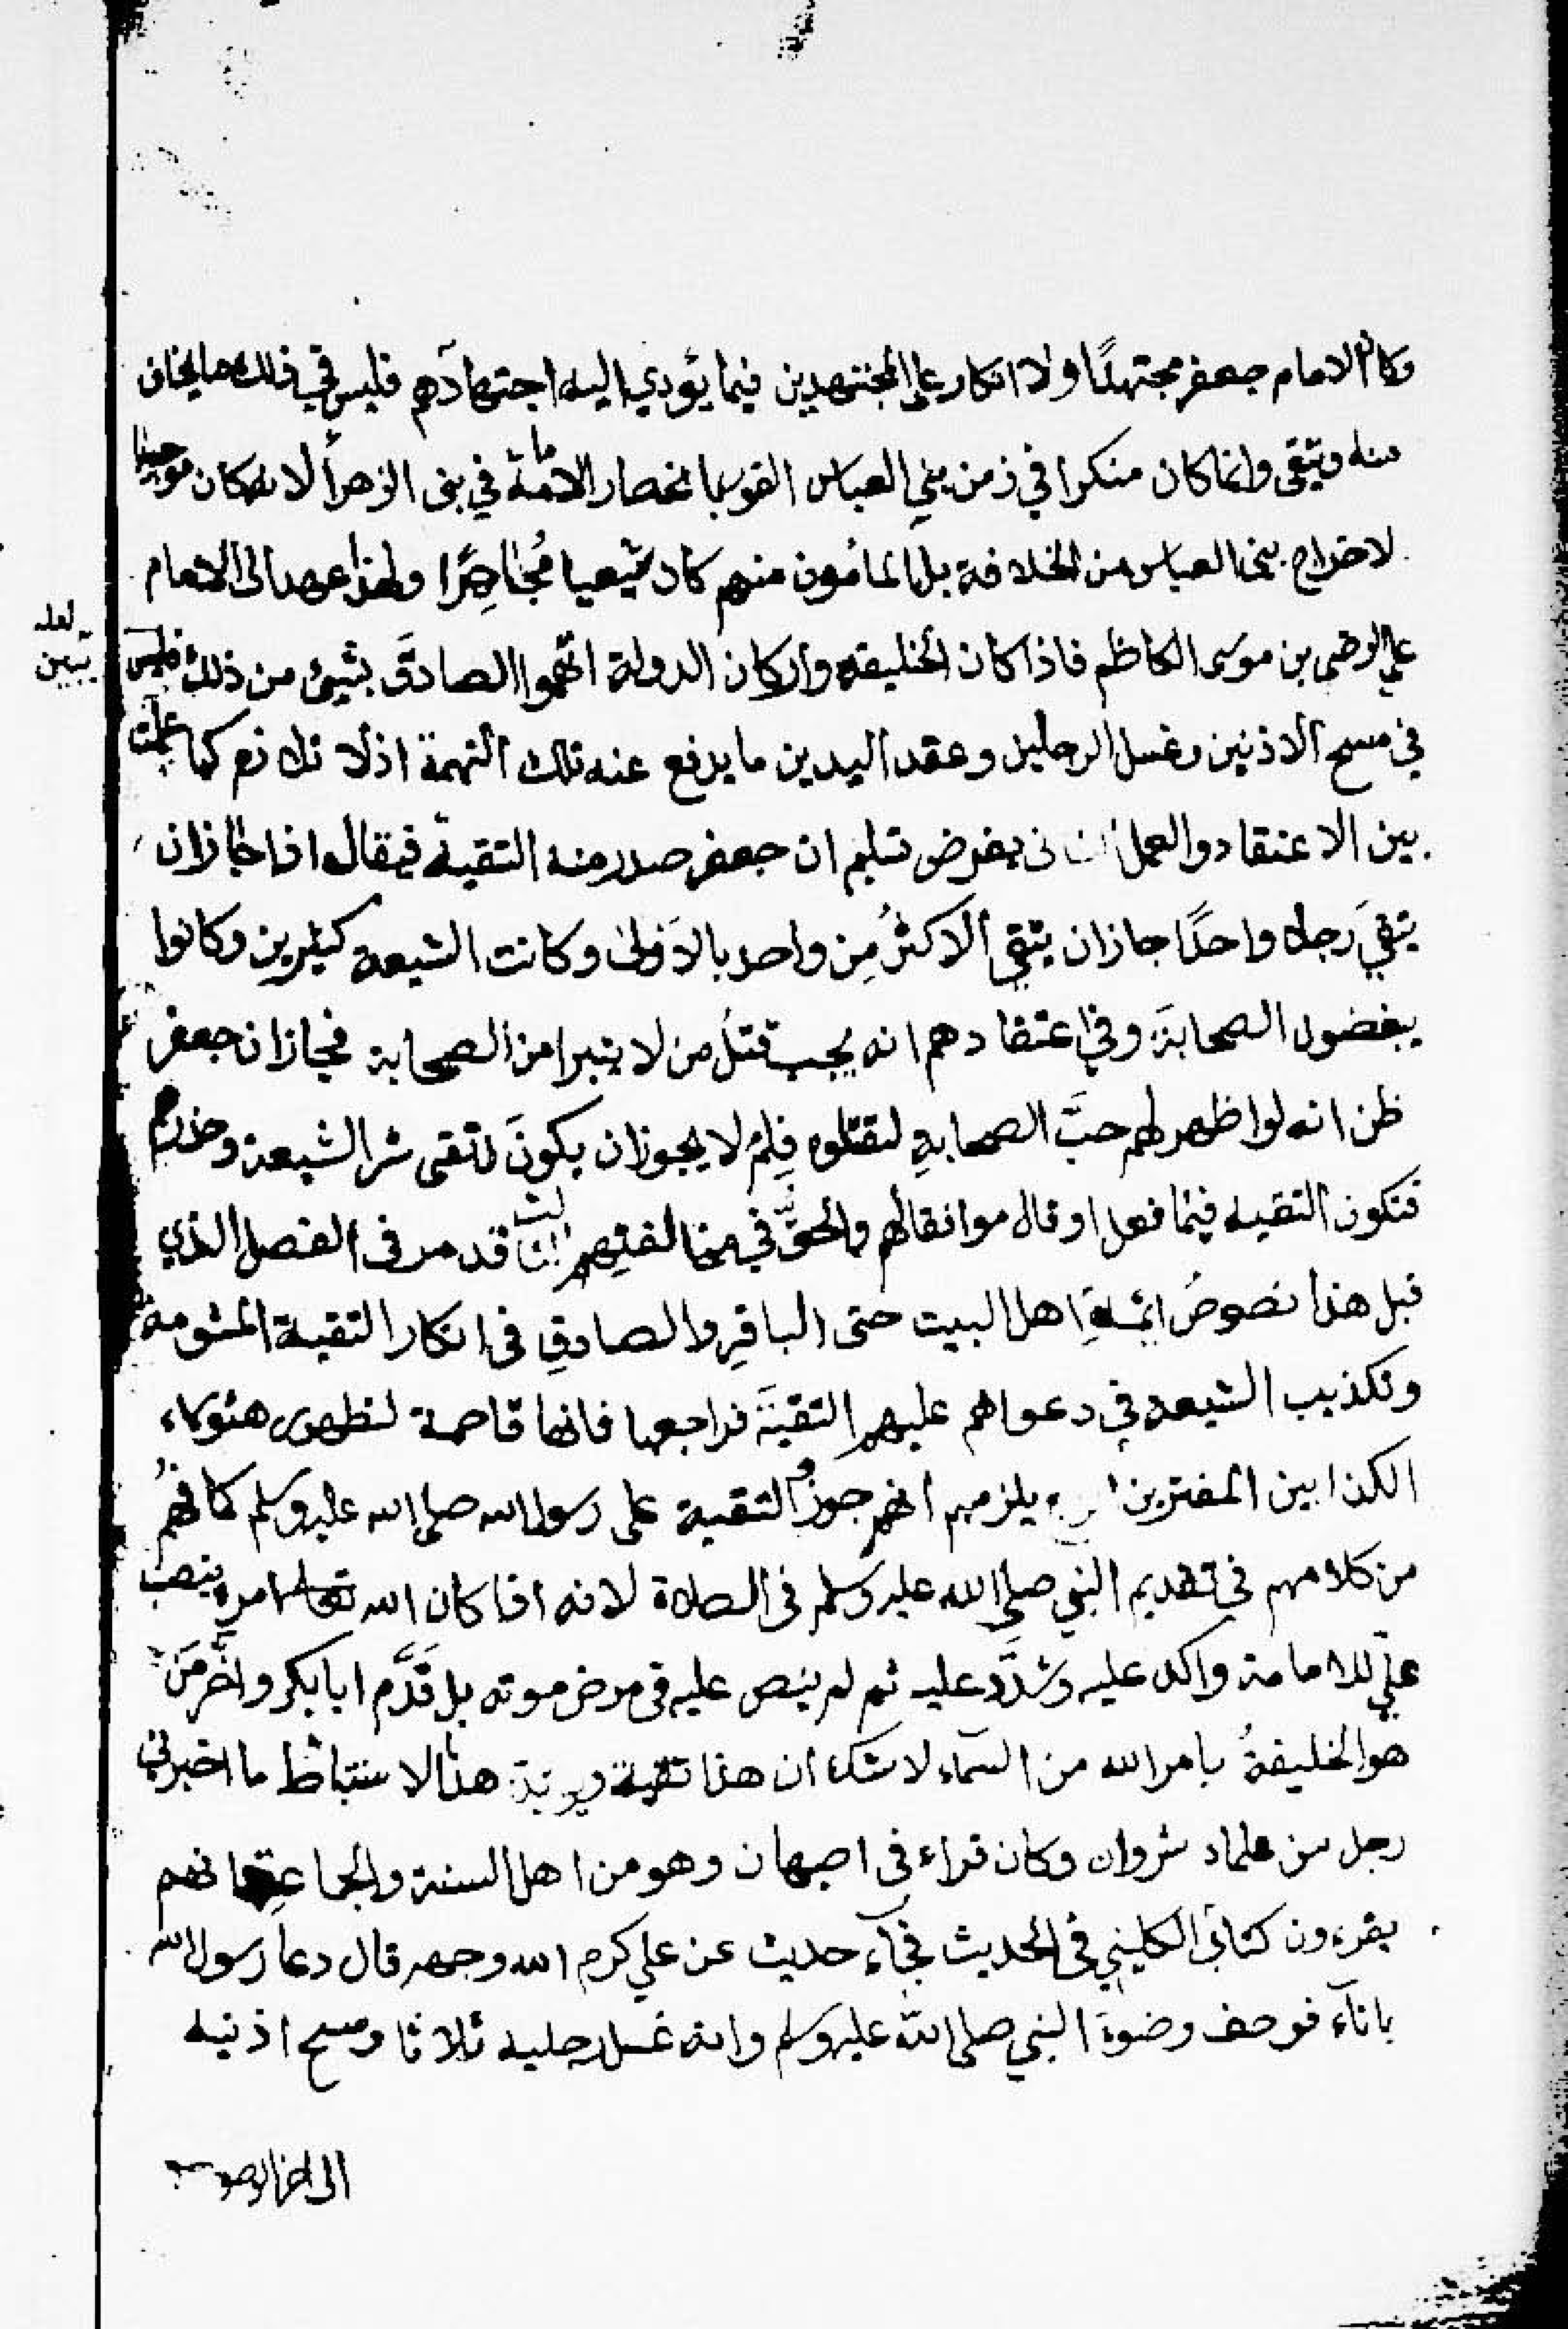 وكان الامام جعفر مجتهدًا ولا انكار على المجتهدين فيما يؤدي اليه اجتهادهم فليس في ذلك ما يخاف
منه ويتقى وانما كان منكرا في زمن بني العباس القول بانحصار الامامة في بنى الزهرأ لانه كان موجبا
لاخراج بنى العباس من الخلافة بل المامون منهم كان شيعيا مُجَاهِرًا ولهذا عهد الى الامام
علي الرضى بن موسى الكاظم فاذا كان الخليفه واركان الدولة اتهموا الصادقَ بشيئ من ذلك فليس
لعله
يتبين
في مسح الاذنين وغسل الرجلين وعقد اليدين ما يدفع عنه تلك التهمة اذ لا تلازم كما علمت
بين الاعتقاد والعمل بفرض تسليم ان جعفر صدر منه التقية فيقال اذا جازان
يتقيَ رجلا واحدًا جازان يتقي الاكثرُ مِن واحد بالاَولى وكانت الشيعه كثيرين وكانوا
يبغضون الصحابةَ وفي اعتقادهم انه يجب قتلُ من لا يتبرا من الصحابة فجازان جعفر
ظن انه لو اظهر لهم حبَّ الصحابةِ لقتلوه فلِمَ لا يجوزان يكونَ اتقى شر الشيعة وحذرهم
فتكون التقيه فيما فعل او قال موافقالهم والحقُّ في مخالفتِهم قد مر فى الفصل الذي
قبل هذا نصوصُ ائمةِ اهل البيت حتى الباقرِ والصادقِ فى انكار التقية المشومة
وتكذيب الشيعه في دعواهم عليهم التقيةَ فراجعها فانها قاصمة لظهور هؤلاء
الكذابين المفترين يلزمهم انهم جوزوا التقية على رسول الله صلى الله عليه وسلم كما فُهم
من كلامهم فى تقديم النبي صلى الله عليه وسلم فى الصلاة لانه اذا كان الله تعالى امره بنصب
علي للامامة واكد عليه وشدَّد عليه ثم لم ينص عليه فى مرض موته بل قَدَّم ابابكر واخَّر مَن
هو الخليفةُ بامر الله من السماء لاشك ان هذا تقية هذا الاستنباط ما اخبرني
رجل من علماء شروان وكان قراء فى اصبهان وهو من اهل السنة والجماعة انهم
يقرءون كتابَ الكليني فى الحديث فجآء حديث عن علي كرم الله وجهه قال دعا رسول الله
بانآء فوصف وضوءَ النبي صلى الله عليه وسلم وانه غسل رجليه ثلاثا ومسح اذنيه
الى اخر الوضوء